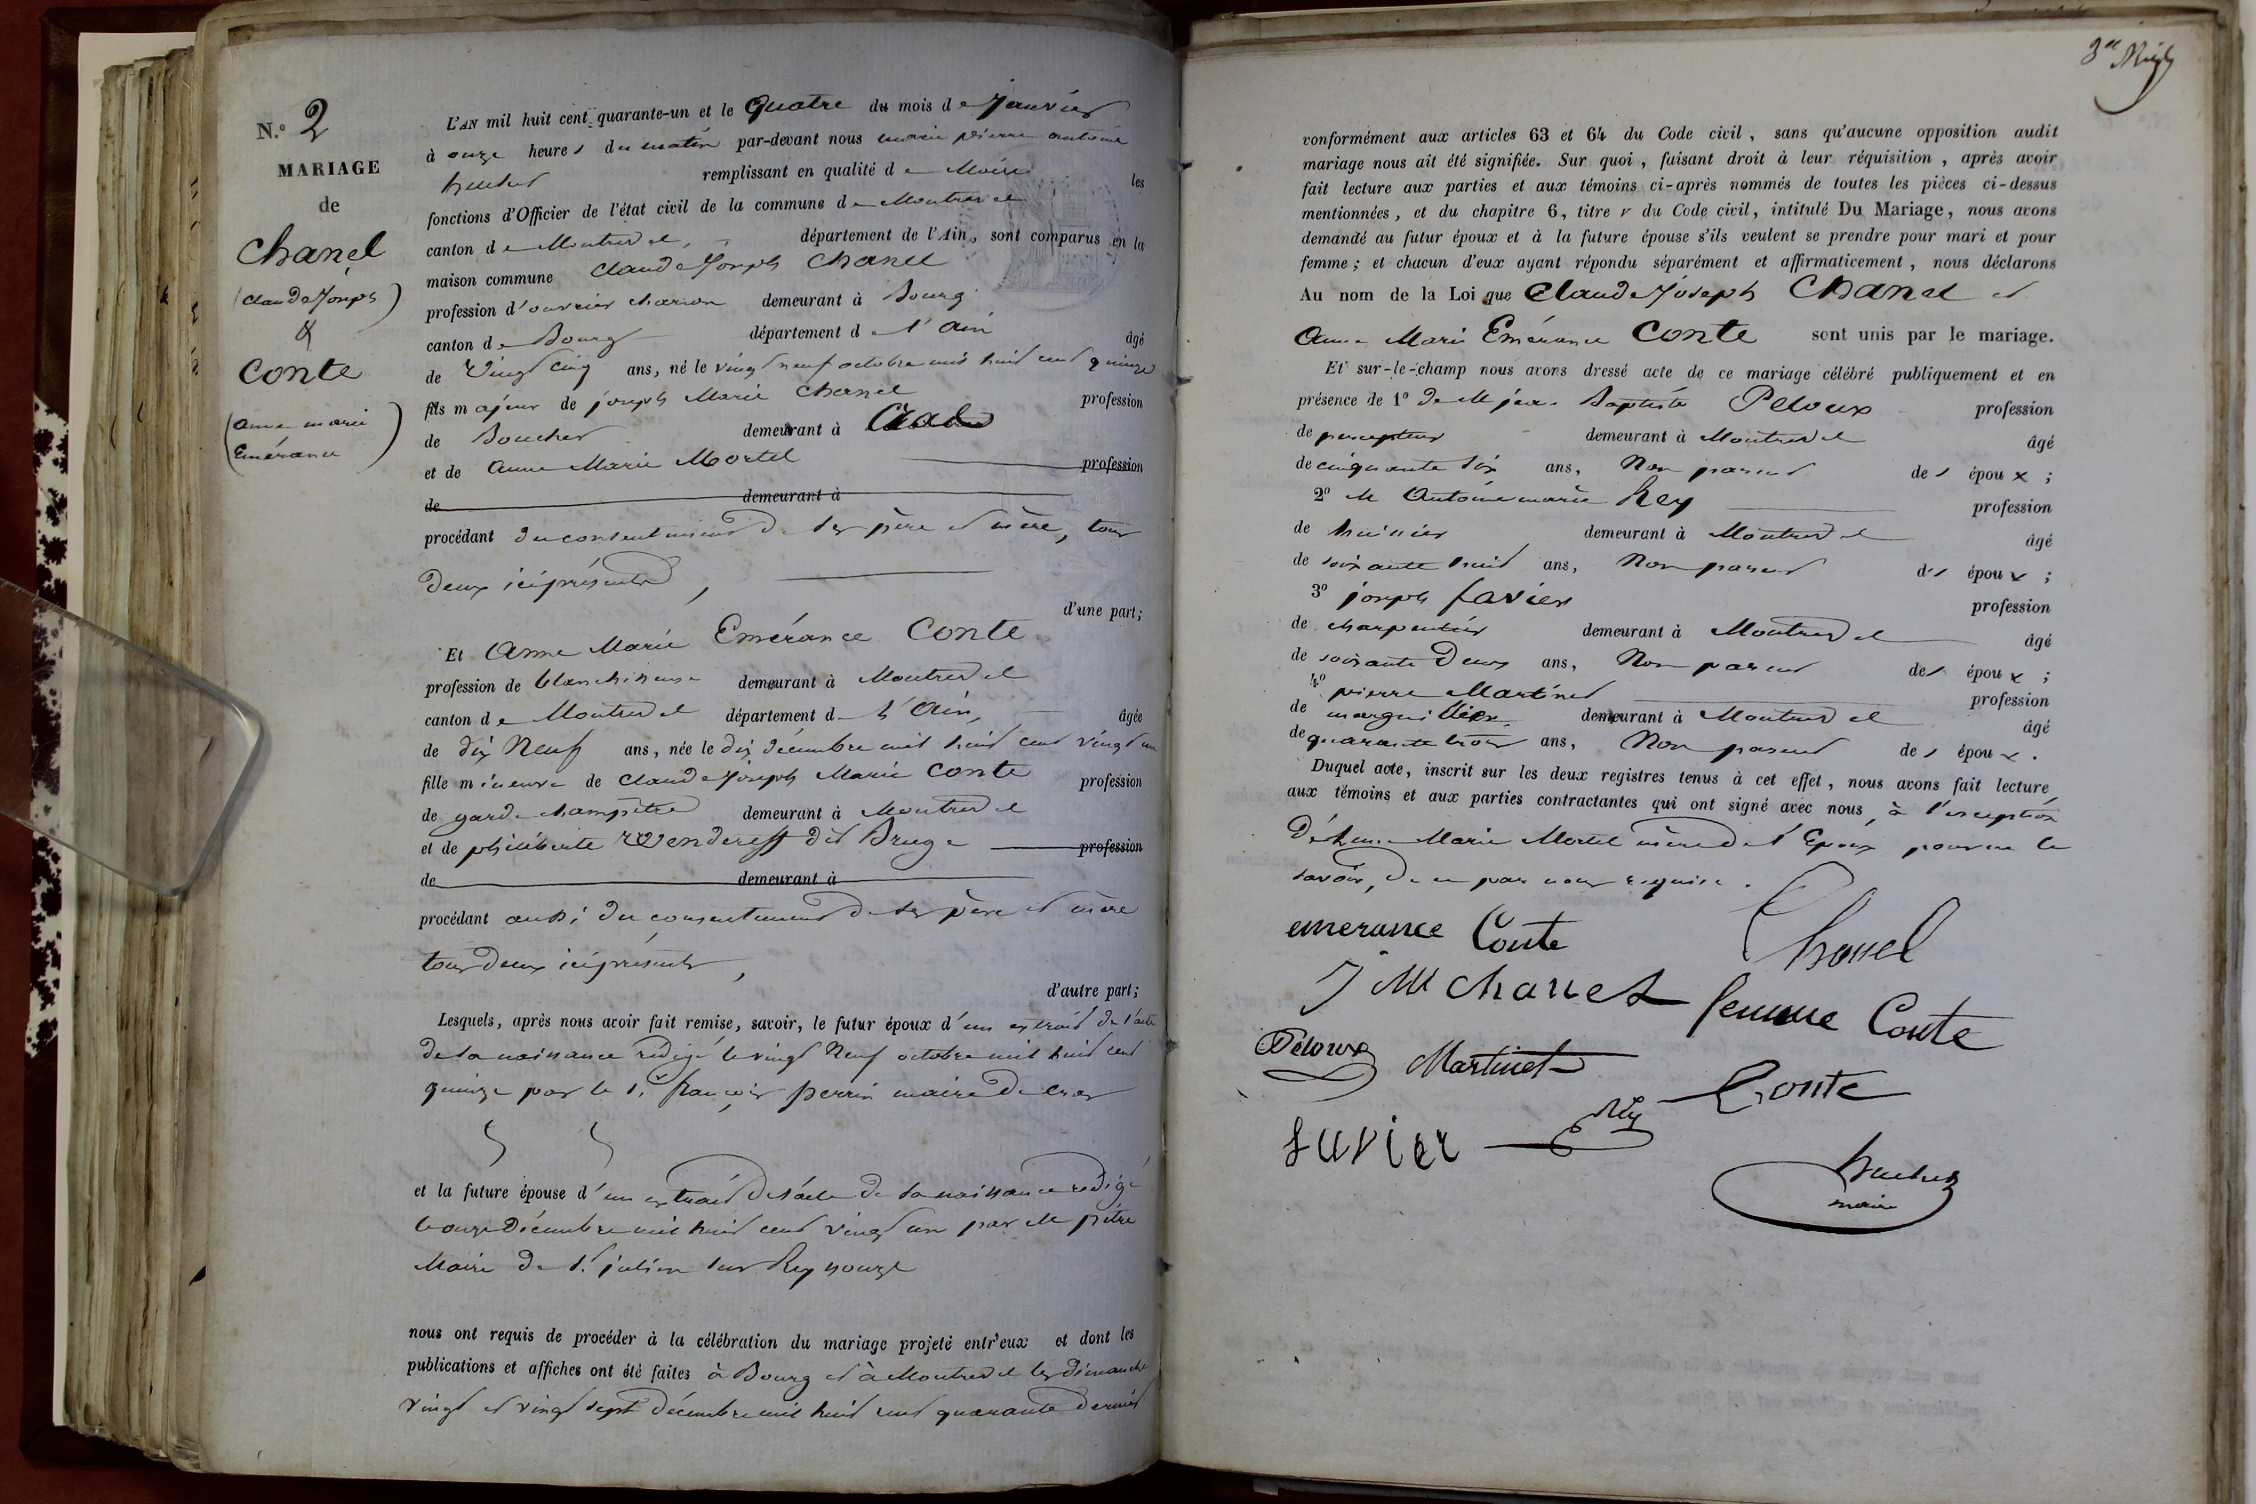 N.o 2
MARIAGE
de
Chanel
(Claude Joseph)
&
Conte
(anne marie
Emérance)
L'AN mil huit cent quarante-un et le Quatre du mois de Janvier
à onze heures du matin par-devant nous marie pierre antoine
remplissant en qualité de Maire les
fonctions d'Officier de l'état civil de la commune de Montrevel
canton de Montrevel, département de l'Ain, sont comparus en la
maison commune Claude Joseph Chanel
profession d'ouvrier charron demeurant à Bourg
canton de Bourg département de l'Ain âgé
de Vingt cinq ans, né le vingt neuf octobre mil huit cent quinze
fils majeur de joseph Marie Chanel profession
de Boucher demeurant à Cras
et de Anne Marie Mortel profession
de demeurant à
procédant du consentement de ses père et mère, tous
deux ici présents,
d'une part;
Et Anne Marie Emérance Conte
profession de blanchisseuse demeurant à Montrevel
canton de Montrevel département de l'Ain, âgée
de dix Neuf ans, née le dix décembre mil huit cent vingt un
fille mineure de Claude Joseph Marie Conte profession
de garde champêtre demeurant à Montrevel
et de philiberte Wendereff dit Bruge profession
de demeurant à
procédant aussi du consentement de ses père et mère
tous deux ici présents,
d'autre part;
Lesquels, après nous avoir fait remise, savoir, le futur époux d'un extrait de l'acte
de sa naissance rédigé le vingt Neuf octobre mil huit cent
quinze par le sr françois perrin maire de cras
et la future épouse d'un extrait de l'acte de sa naissance rédigé
le onze Décembre mil huit cent vingt un par M. pitre
Maire de St julien sur Reyssouze
nous ont requis de procéder à la célébration du mariage projeté entr'eux et dont les
publications et affiches ont été faites à Bourg et à Montrevel les dimanche
vingt et vingt sept décembre mil huit cent quarante dernier
conformément aux articles 63 et 64 du Code civil, sans qu'aucune opposition audit
mariage nous ait été signifiée. Sur quoi, faisant droit à leur réquisition, après avoir
fait lecture aux parties et aux témoins ci-après nommés de toutes les pièces ci-dessus
mentionnées, et du chapitre 6, titre v du Code civil, intitulé Du Mariage, nous avons
demandé au futur époux et à la future épouse s'ils veulent se prendre pour mari et pour
femme; et chacun d'eux ayant répondu séparément et affirmativement, nous déclarons
Au nom de la Loi que Claude Joseph Chanel et
Anne Marie Emérance Conte sont unis par le mariage.
Et sur-le-champ nous avons dressé acte de ce mariage célébré publiquement et en
présence de 1o de M jean Baptiste Peloux profession
de percepteur demeurant à Montrevel âgé
de cinquante six ans, Non parent des époux;
2o M Antoine marie Rey profession
de huissier demeurant à Montrevel âgé
de soixante huit ans, Non parent des époux;
3o joseph favier profession
de charpentier demeurant à Montrevel âgé
de soixante Deux ans, Non parent des époux;
4o pierre Martinet profession
de marguillier demeurant à Montrevel âgé
de quarante trois ans, Non parent des époux.
Duquel acte, inscrit sur les deux registres tenus à cet effet, nous avons fait lecture
aux témoins et aux parties contractantes qui ont signé avec nous, à l'exception
d'Anne Marie Mortel mère de l'Epoux pour ne le
savoir, de ce par nous requise.
emerance Conte Chanel
J M chanel femme Conte
Peloux Martinet Conte
favier Rey
maire